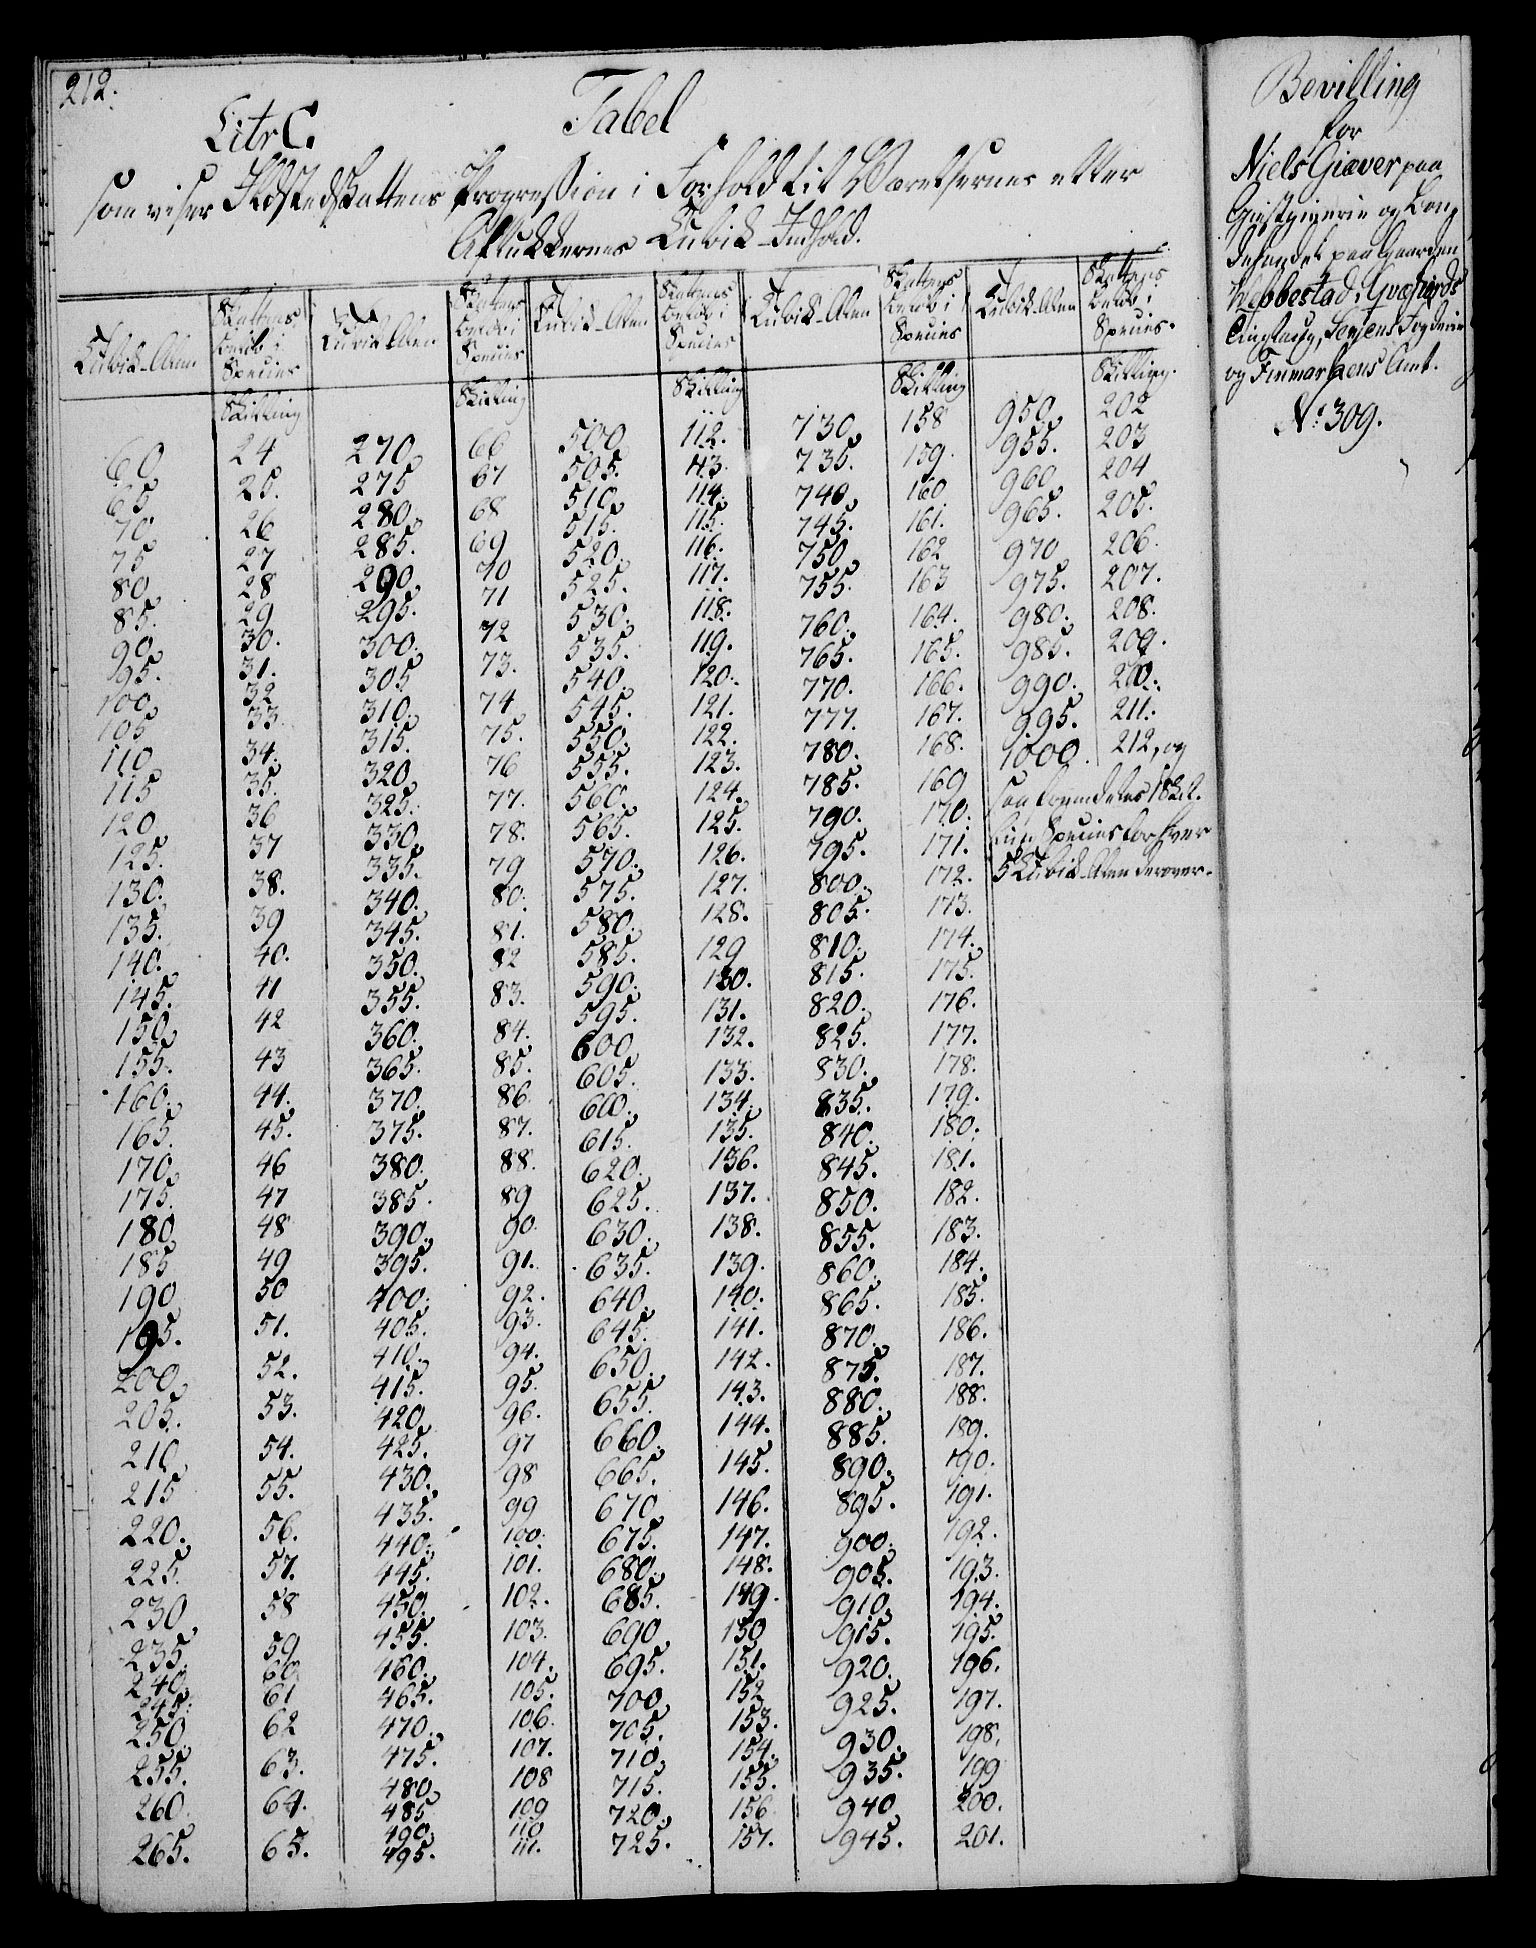 212.
Litr C.
Tabel
som viser Ildstedskattens Progression i Forhold til Værelsernes eller
Aflukkernes Cubik-Indhold.
Cubik-Alen | Skattens Beløb i Species | Cubik-Alen | Skattens Beløb i Species | Cubik-Alen | Skattens Beløb i Species | Cubik-Alen | Skattens Beløb i Species | Cubik-Alen | Skattens Beløb i Species.
Skilling | Skilling | Skilling | Skilling | Skilling.
60 24 270. 66 500. 112. 730. 158 950. 202
65 25. 275 67 505. 113. 735. 159. 955. 203
70 26 280. 68 510. 114. 740. 160 960. 204
75 27 285. 69 515. 115. 745. 161. 965. 205.
80 28 290. 70 520. 116. 750. 162 970 206.
85. 29 295. 71 525. 117. 755. 163 975. 207.
90. 30. 300. 72 530. 118. 760. 164. 980. 208.
95. 31. 305 73. 535. 119. 765. 165. 985. 209.
100. 32 310. 74 540. 120. 770. 166. 990. 210.
105 33. 315. 75. 545. 121. 777. 167. 995. 211.
110. 34. 320 76 550. 122. 780. 168. 1000. 212, og
115 35. 325. 77. 555. 123. 785. 169 saa fremdeles 1 Skil-
120 36 330. 78. 560. 124. 790. 170. ling Species for hver
125. 37 335. 79 565. 125. 795. 171. 5 Cubik-Alen derover.
130. 38. 340. 80. 570. 126. 800. 172.
135. 39 345. 81. 575. 127. 805. 173.
140. 40. 350. 82 580. 128. 810. 174.
145. 41 355. 83. 585. 129 815. 175.
150. 42 360. 84. 590. 130. 820. 176.
155. 43 365. 85. 595. 131. 825. 177.
160. 44. 370. 86. 600 132. 830. 178.
165. 45. 375. 87. 605. 133. 835. 179.
170. 46 380. 88. 600. 134. 840. 180.
175. 47 385. 89 615. 135. 845. 181.
180. 48 390. 90. 620. 136. 850. 182.
185 49 395. 91. 625. 137. 855. 183.
190 50 400. 92. 630. 138. 860. 184.
195. 51. 405. 93. 635. 139. 865. 185.
200. 52. 410. 94. 640. 140. 870. 186.
205. 53. 415. 95. 645. 141. 875. 187.
210. 54. 420. 96. 650. 142. 880. 188.
215 55. 425. 97 655. 143. 885. 189.
220. 56. 430. 98 660. 144. 890. 190.
225. 57. 435. 99 665. 145. 895. 191.
230 58 440. 100. 670. 146. 900. 192.
235. 59 445. 101. 675. 147. 905. 193.
240. 60. 450. 102. 680. 148. 910. 194.
245. 61 455. 103. 685. 149. 915. 195.
250. 62 460. 104. 690 150 920. 196.
255. 63. 465. 105. 695. 151. 925. 197.
260. 64. 470. 106. 700. 152 930. 198.
265. 65. 475. 107. 705. 153. 935. 199
480. 108 710. 154. 940 200.
485 109 715. 155. 945. 201.
490. 110 720. 156
495. 111. 725. 157.
Bevilling
for
Niels Giæver paa
Giestgiverie og
paa Gaarden
Webbestad i Qvæfiords
Tinglaug, Senjens Fogderie
og Finmarkens Amt.
No. 309.